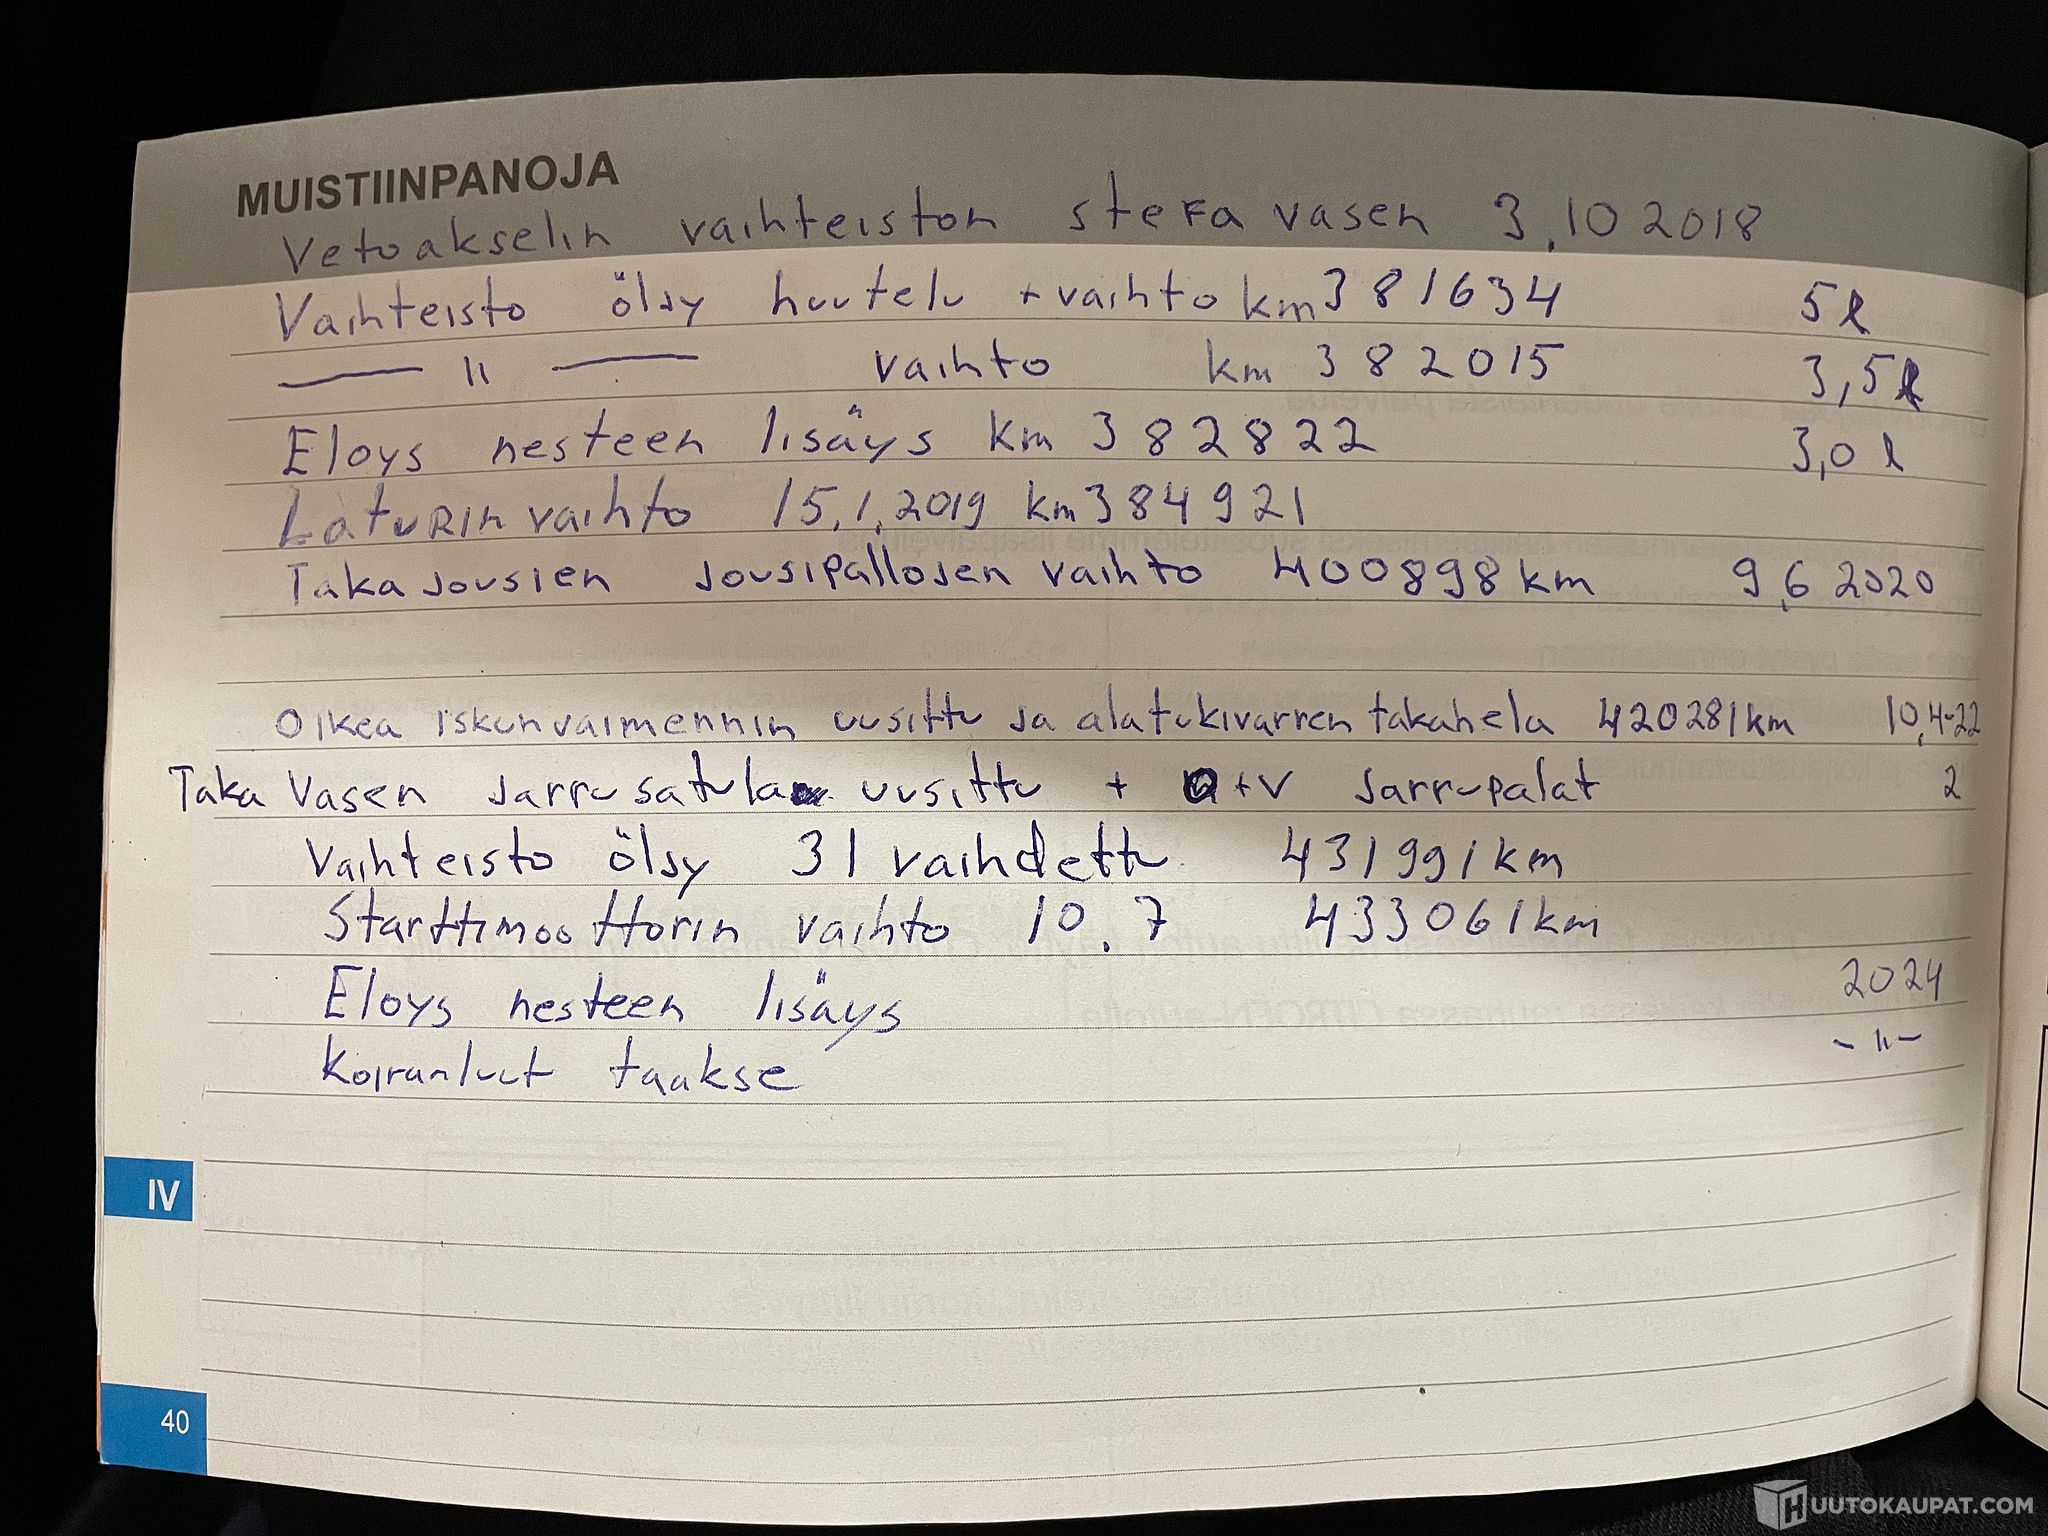 MUISTIINPANOJA
Vetoakselin vaihteiston stefa vasen 3.10 2018
Vaihteisto ölsy huutelu + vaihto km 381634 5 l
— " — vaihto km 382015 3,5 l
Eloys nesteen lisäys km 382822 3,0 l
Laturin vaihto 15.1.2019 km 384921
Taka jousien jousipallojen vaihto 400898 km 9.6 2020
Oikea iskunvaimennin uusittu ja alatukivarren takahela 420281 km 10.4-22
Taka Vasen jarrusatula uusittu + O+V jarrupalat 2
Vaihteisto ölsy 3 l vaihdettu 431991 km
Starttimoottorin vaihto 10.7 433061 km
Eloys nesteen lisäys 2024
Koiranluut taakse - " -
IV
40
HUUTOKAUPAT.COM